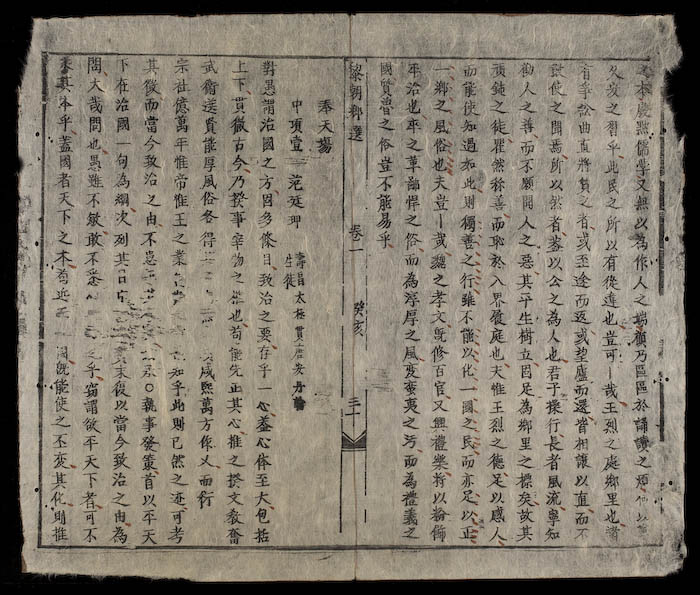 本慶黜儒學又無以為作人之端顧乃區區於誦讀之煩
久變之習乎此民之所以有從違也豈可一哉王烈之處鄉里也諸
有爭訟曲直將質之者或至途而返或望廬而還皆相讓以直而不
敢使之聞焉所以然者蓋以公之為人也君子操行長者風流寧知
勸人之善而不願聞人之惡其平生樹立固足為鄉里之標矣故其
頑鈍之徒瞿然徐善而恥於入界後庭也夫惟王烈之德足以感人
而能使知過如此則獨善之行雖不能以化一國之民而亦足以正
一鄉之風俗也夫豈一哉魏之孝文既修百官又興禮樂將以粉飾
平治也卒之革誦悍之俗而為淳厚之風變蠻夷之污而為禮義之
國質魯之俗豈不能易乎
黎朝鄉選 卷一 癸亥 三十一
奉天場
中項壹一范廷珅
壽昌太極貫 安丹輪
生徒
對愚謂治國之方固多條目致治之要存乎一心蓋心体至大包括
上下貫徹古今乃揆事宰物之權也苟能先正其心推之揆文教奮
武衛送貴能厚風俗各得 咸熙萬方作乂而衍
宗社億萬年惟帝惟王之業 知乎此則已然之迹可考
其徵而當今致治之由不患 承○執事發策首以平天
下在治國一句為綱次列其目 末復以當今致治之由為
問大哉問也愚雖不敏敢不悉心 之乎竊謂欲平天下者可不
本其本乎蓋國者天下之本苟 國既能使之丕變其化則推